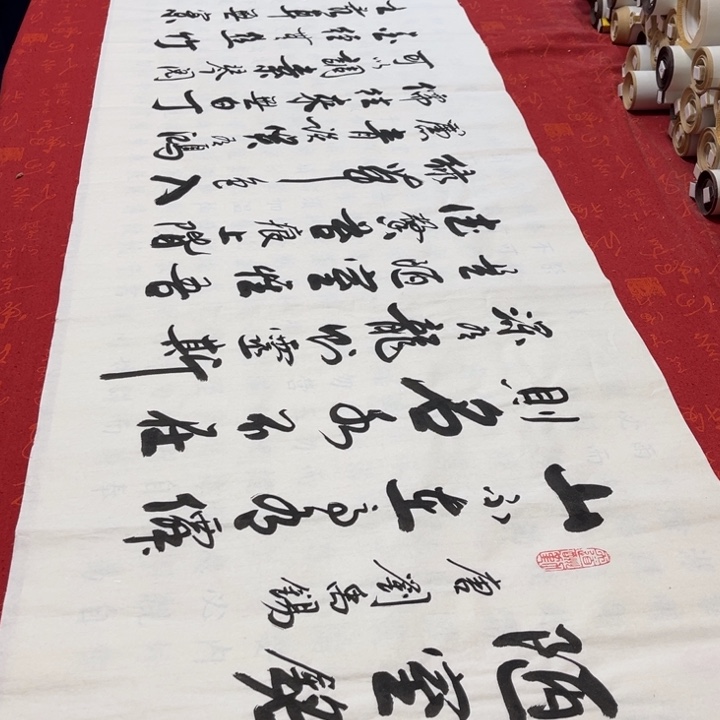 陋室銘
唐 劉禹錫
山不在高有僊
則名水不在
深有龍則靈斯
是陋室惟吾
德馨苔痕上階
綠草色入
簾青談笑有鴻
儒往來無白丁
可以調素琴閱
金經無絲竹
之亂耳無案